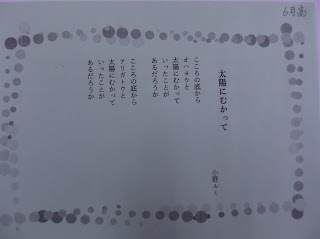 6月(高)
太陽にむかって
小野ルミ
こころの底から
オハヨウと
太陽にむかって
いったことが
あるだろうか
こころの底から
アリガトウと
太陽にむかって
いったことが
あるだろうか